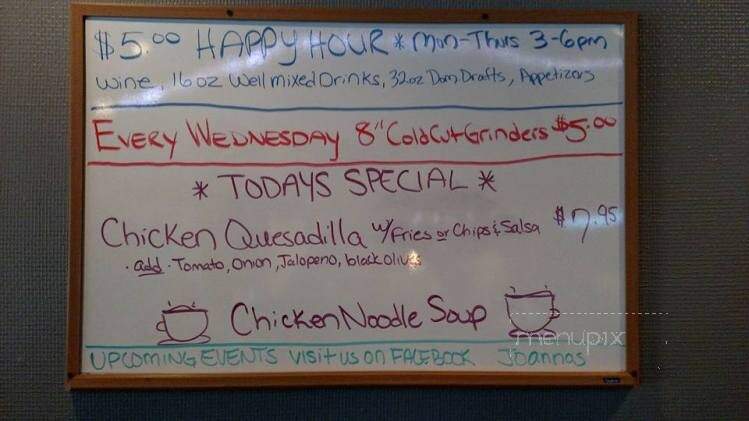 $5.00 HAPPY HOUR * Mon-Thurs 3-6pm
Wine, 16oz Well mixed Drinks, 32oz Dom Drafts, Appetizers
EVERY WEDNESDAY 8" Cold Cut Grinders $5.00
* TODAYS SPECIAL *
Chicken Quesadilla w/Fries or Chips & Salsa $7.95
· add · Tomato, Onion, Jalopeno, black olives
Chicken Noodle Soup
menupix
UPCOMING EVENTS Visit us on FACEBOOK Joannas